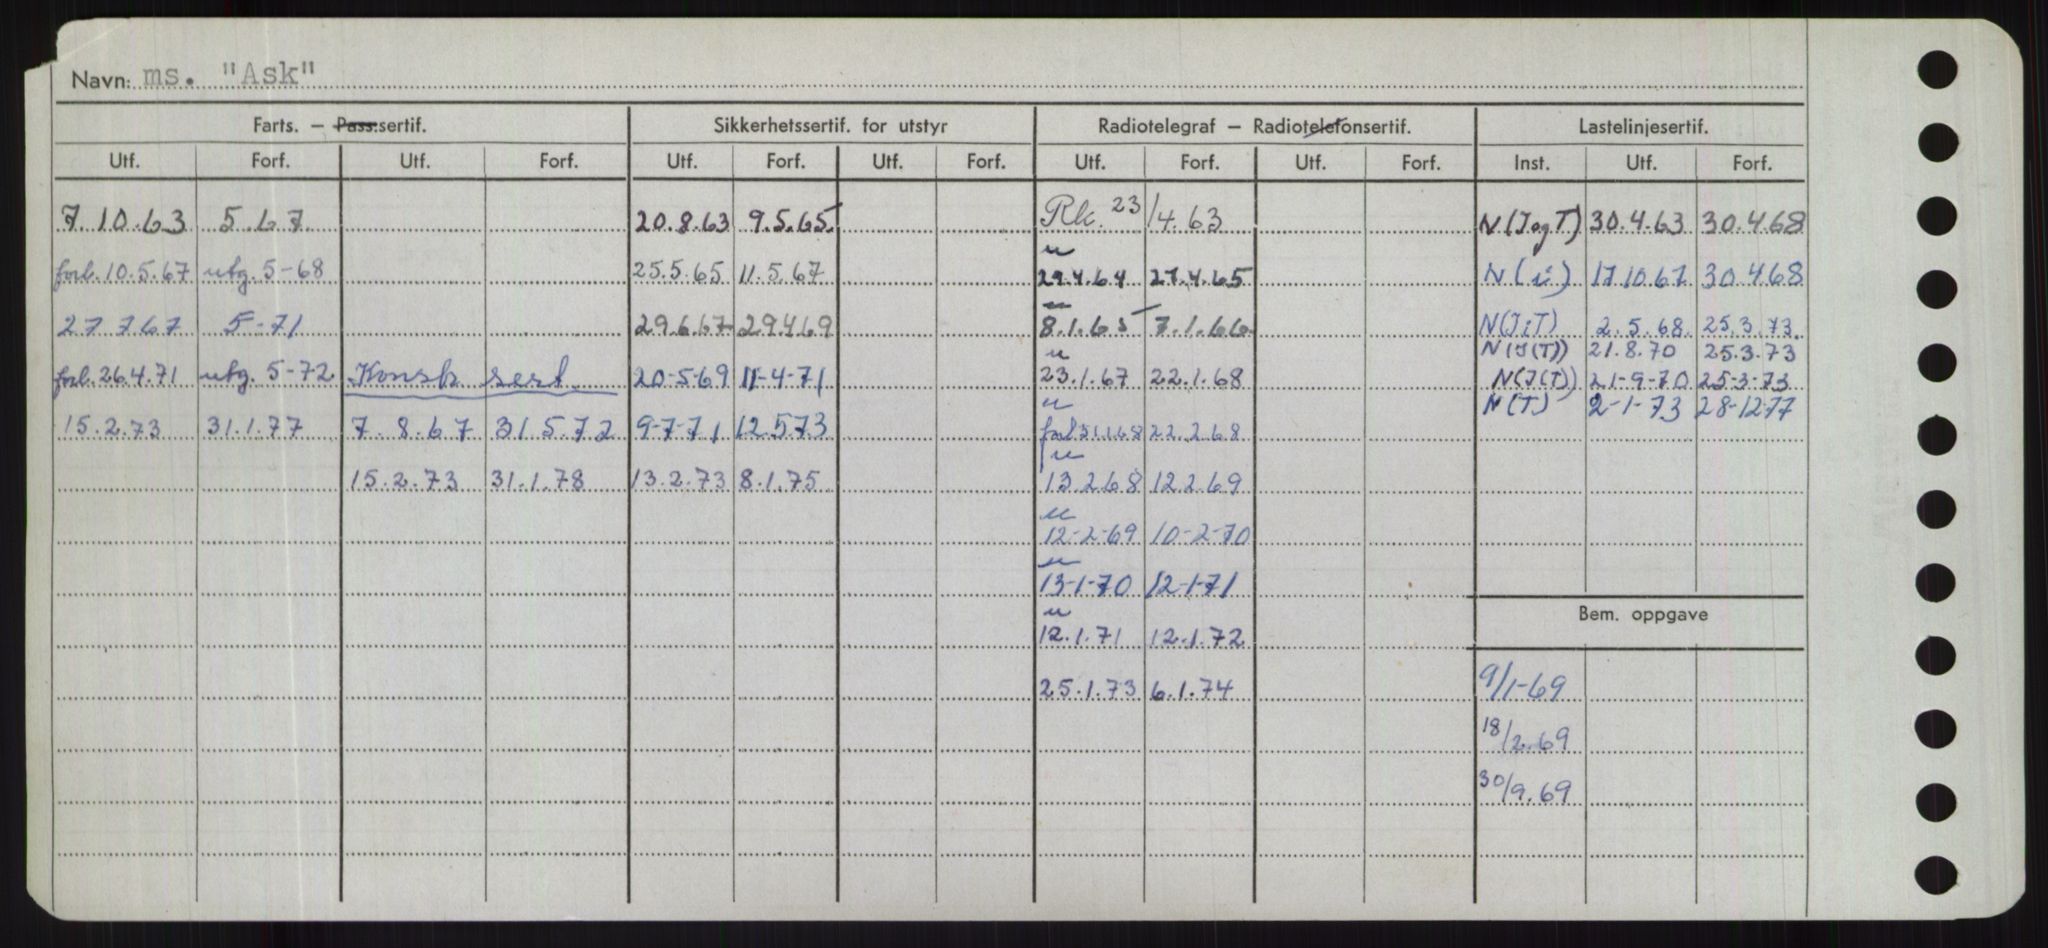 Navn: ms. "Ask"
Farts. – Pass.sertif. Sikkerhetssertif. for utstyr Radiotelegraf – Radiotelefonsertif. Lastelinjesertif.
Utf. Forf. Utf. Forf. Utf. Forf. Utf. Forf. Utf. Forf. Utf. Forf. Inst. Utf. Forf.
7.10.63 5.67 20.8.63 9.5.65 Rk. 23/4.63 N (J og T) 30.4.63 30.4.68
"
forl. 10.5.67 utg. 5-68 25.5.65 11.5.67 29.4.64 27.4.65 N ( i ) 17.10.67 30.4.68
"
27 7 67 5-71 29.6.67 29.4.69 8.1.65 7.1.66 N(JiT) 2.5.68. 25.3.73.
N(J(T)) 21.8.70 25.3.73
"
forl. 26.4.71 utg. 5-72 Konstr sert. 20-5-69 11-4-71 23.1.67 22.1.68 N(J(T)) 21-9-70 25-3-73
" N(T) 2-1-73 28-12-77
15.2.73 31.1.77 7.8.67 31.5.72 9-7-71 12.5.73 forl 31.1.68 22.2.68
"
15.2.73 31.1.78 13.2.73 8.1.75 13.2.68 12.2.69
"
12-2-69 10-2-70
"
13-1-70 12-1-71
Bem. oppgave
"
12.1.71 12.1.72
9/1-69
25.1.73 6.1.74
18/2.69
30/9.69